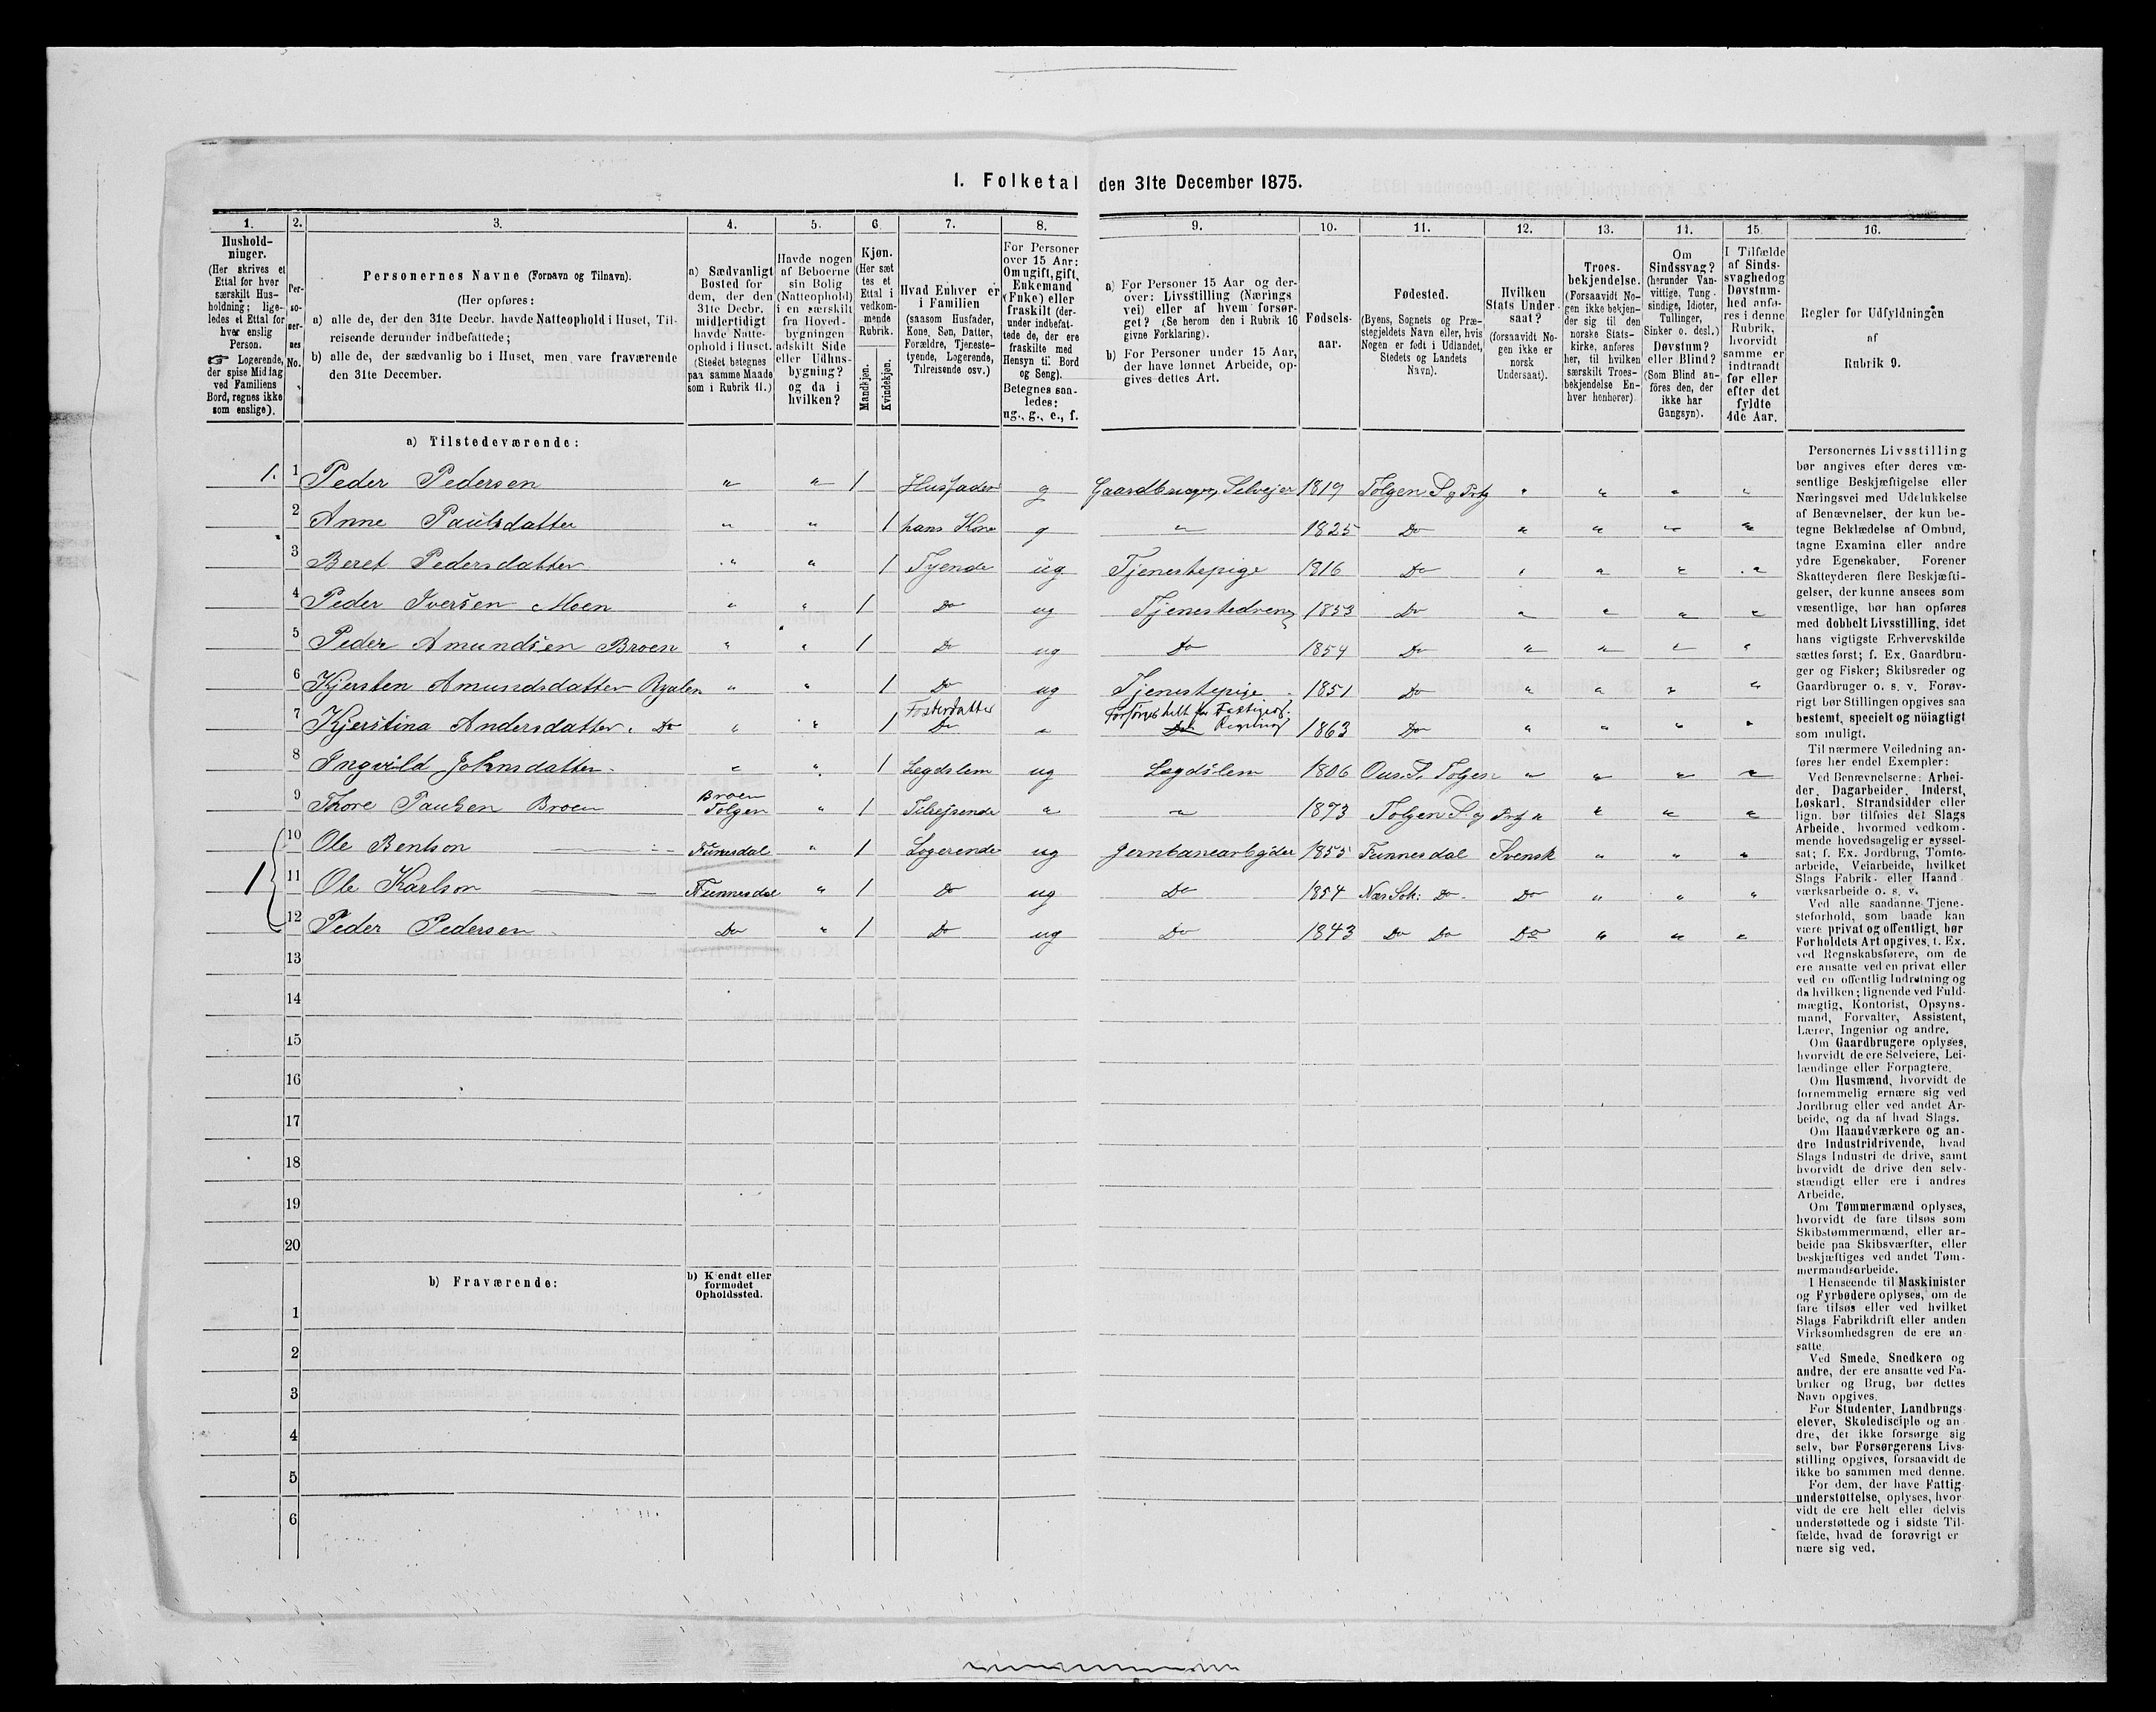 I. Folketal den 31te December 1875.
1. 2. 3. 4. 5. 6. 7. 8. 9. 10. 11. 12. 13. 14. 15. 16.
Hushold-
ninger.
(Her skrives et
Ettal for hver
særskilt Hus-
holdning; lige-
ledes et Ettal for
hver enslig
Person.
☞ Logerende,
der spise Middag
ved Familiens
Bord, regnes ikke
som enslige).
Per-
so-
ner-
nes
No.
Personernes Navne (Fornavn og Tilnavn).
(Her opføres:
a) alle de, der den 31te Decbr. havde Natteophold i Huset, Til-
reisende derunder indbefattede;
b) alle de, der sædvanlig bo i Huset, men vare fraværende
den 31te December.
a) Sædvanligt
Bosted for
dem, der den
31te Decbr.
midlertidigt
havde Natte-
ophold i Huset.
(Stedet betegnes
paa samme Maade
som i Rubrik 11.)
Havde nogen
af Beboerne
sin Bolig
(Natteophold)
i en særskilt
fra Hoved-
bygningen
adskilt Side
eller Udhus-
bygning?
og da i
hvilken?
Kjøn.
(Her sæt
tes et
Ettal i
vedkom-
mende
Rubrik.
Mandkjøn.
Kvindekjøn.
Hvad Enhver er
i Familien
(saasom Husfader,
Kone, Søn, Datter,
Forældre, Tjeneste-
tyende, Logerende,
Tilreisende osv.)
For Personer
over 15 Aar:
Om ugift, gift,
Enkemand
(Enke) eller
fraskilt (der-
under indbefat-
tede de, der ere
fraskilte med
Hensyn til Bord
og Seng).
Betegnes saa-
ledes:
ug., g., e., f.
a) For Personer 15 Aar og der-
over: Livsstilling (Nærings
vei) eller af hvem forsør-
get? (Se herom den i Rubrik 16
givne Forklaring).
b) For Personer under 15 Aar,
der have lønnet Arbeide, op-
gives dettes Art.
Fødsels-
aar.
Fødested.
(Byens, Sognets og Præ-
stegjeldets Navn eller, hvis
Nogen er født i Udlandet,
Stedets og Landets
Navn).
Hvilken
Stats Under-
saat?
(forsaavidt No-
gen ikke er
norsk
Undersaat).
Troes-
bekjendelse.
(Forsaavidt No-
gen ikke bekjen-
der sig til den
norske Stats-
kirke, anføres
her, til hvilken
særskilt Troes-
bekjendelse En-
hver henhører).
Om
Sindssvag?
(herunder Van-
vittige, Tung-
sindige, Idioter,
Tullinger,
Sinker o. desl.)
Døvstum?
eller Blind?
(Som Blind an-
føres den, der
ikke har
Gangsyn).
I Tilfælde
af Sinds-
svaghed og
Døvstum-
hed anfø-
res i denne
Rubrik,
hvorvidt
samme er
indtraadt
før eller
efter det
fyldte
4de Aar.
Regler for Udfyldningen
af
Rubrik 9.
a) Tilstedeværende:
1. 1 Peder Pedersen " " 1 Husfader g Gaardbruger, Selvejer 1819 Tolgen S og Prtg " " " "
2 Anne Paulsdatter " " 1 hans Kone g " 1825 Do " " " "
3 Beret Pedersdatter " " 1 Tyende ug Tjenestepige 1816 Do " " " "
4 Peder Iversen Moen " " 1 Do ug Tjenestedreng 1853 Do " " " "
5 Peder Amundsen Broen " " 1 Do ug Do 1854 Do " " " "
6 Kjersten Amundsdatter Ryalen " " 1 Do ug Tjenestepige 1851 Do " " " "
7 Kjerstina Andersdatter Do " " 1 Fosterdatter Do " Do 1863 Do " " " "
8 Ingvild Johnsdatter " " 1 Lægdslem ug Lægdslem 1806 Ous. S. Tolgen " " " "
9 Thore Paulsen Broen Broen Tolgen " 1 Tilrejsende " " 1873 Tolgen S. og Prtg " " " "
10 Ole Bentson Funnesdal " 1 Logerende ug Jernbanearbejder 1855 Funnesdal Svensk " " "
1 11 Ole Karlson Funnesdal " 1 Do ug Do 1854 Næs Sok: Do Do " " "
12 Peder Pedersen Do " 1 Do ug Do 1843 Do Do Do " " "
13
14
15
16
17
18
19
20
b) Fraværende:
b) Kjendt eller
formodet
Opholdssted.
1
2
3
4
5
6
Personernes Livsstilling
bør angives efter deres væ-
sentlige Beskjæftigelse eller
Næringsvei med Udelukkelse
af Benævnelser, der kun be-
tegne Beklædelse af Ombud,
tagne Examina eller andre
ydre Egenskaber. Forener
Skatteyderen flere Beskjæfti-
gelser, der kunne ansees som
væsentlige, bør han opføres
med dobbelt Livsstilling, idet
hans vigtigste Erhvervskilde
sættes først; f. Ex. Gaardbru-
ger og Fisker; Skibsreder og
Gaardbruger o. s. v. Forøv-
rigt bør Stillingen opgives saa
bestemt, specielt og nøiagtigt
som muligt.
Til nærmere Veiledning an-
føres her endel Exempler:
Ved Benævnelserne: Arbei-
der, Dagarbeider, Inderst,
Løskarl, Strandsidder eller
lign. bør tilføies det Slags
Arbeide, hvormed vedkom-
mende hovedsagelig er syssel-
sat; f. Ex. Jordbrug, Tomte-
arbeide, Veiarbeide, hvilket
Slags Fabrik- eller Haand
værksarbeide o. s. v.
Ved alle saadanne Tjene-
steforhold, som baade kan
være privat og offentligt, bør
Forholdets Art opgives, f. Ex.
ved Regnskabsførere, om de
ere ansatte ved en privat eller
ved en offentlig Indretning og
da hvilken; lignende ved Fuld-
mægtig, Kontorist, Opsyns-
mand, Forvalter, Assistent,
Lærer, Ingeniør og andre.
Om Gaardbrugere oplyses,
hvorvidt de ere Selveiere, Lei-
lændinge eller Forpagtere.
Om Husmænd, hvorvidt de
fornemmelig ernære sig ved
Jordbrug eller ved andet Ar-
beide, og da af hvad Slags.
Om Haandværkere og an-
dre Industridrivende, hvad
Slags Industri de drive, samt
hvorvidt de drive den selv-
stændigt eller ere i andres
Arbeide.
Om Tømmermænd oplyses,
hvorvidt de fare tilsøs som
Skibstømmermænd, eller ar-
beide paa Skibsværfter, eller
beskjæftiges ved andet Tøm-
mermandsarbeide.
I Henseende til Maskinister
og Fyrbødere oplyses, om de
fare tilsøs eller ved hvilket
Slags Fabrikdrift eller anden
Virksomhedsgren de ere an-
satte.
Ved Smede, Snedkere og
andre, der ere ansatte ved Fa-
briker og Brug, bør dettes
Navn opgives.
For Studenter, Landbrugs-
elever, Skoledisciple og an
dre, der ikke forsørge sig
selv, bør Forsørgerens Livs-
stilling opgives, forsaavidt de
ikke bo sammen med denne.
For dem, der have Fattig-
understøttelse, oplyses, hvor-
vidt de ere helt eller delvis
understøttede og i sidste Til-
fælde, hvad de forøvrigt er
nære sig ved.